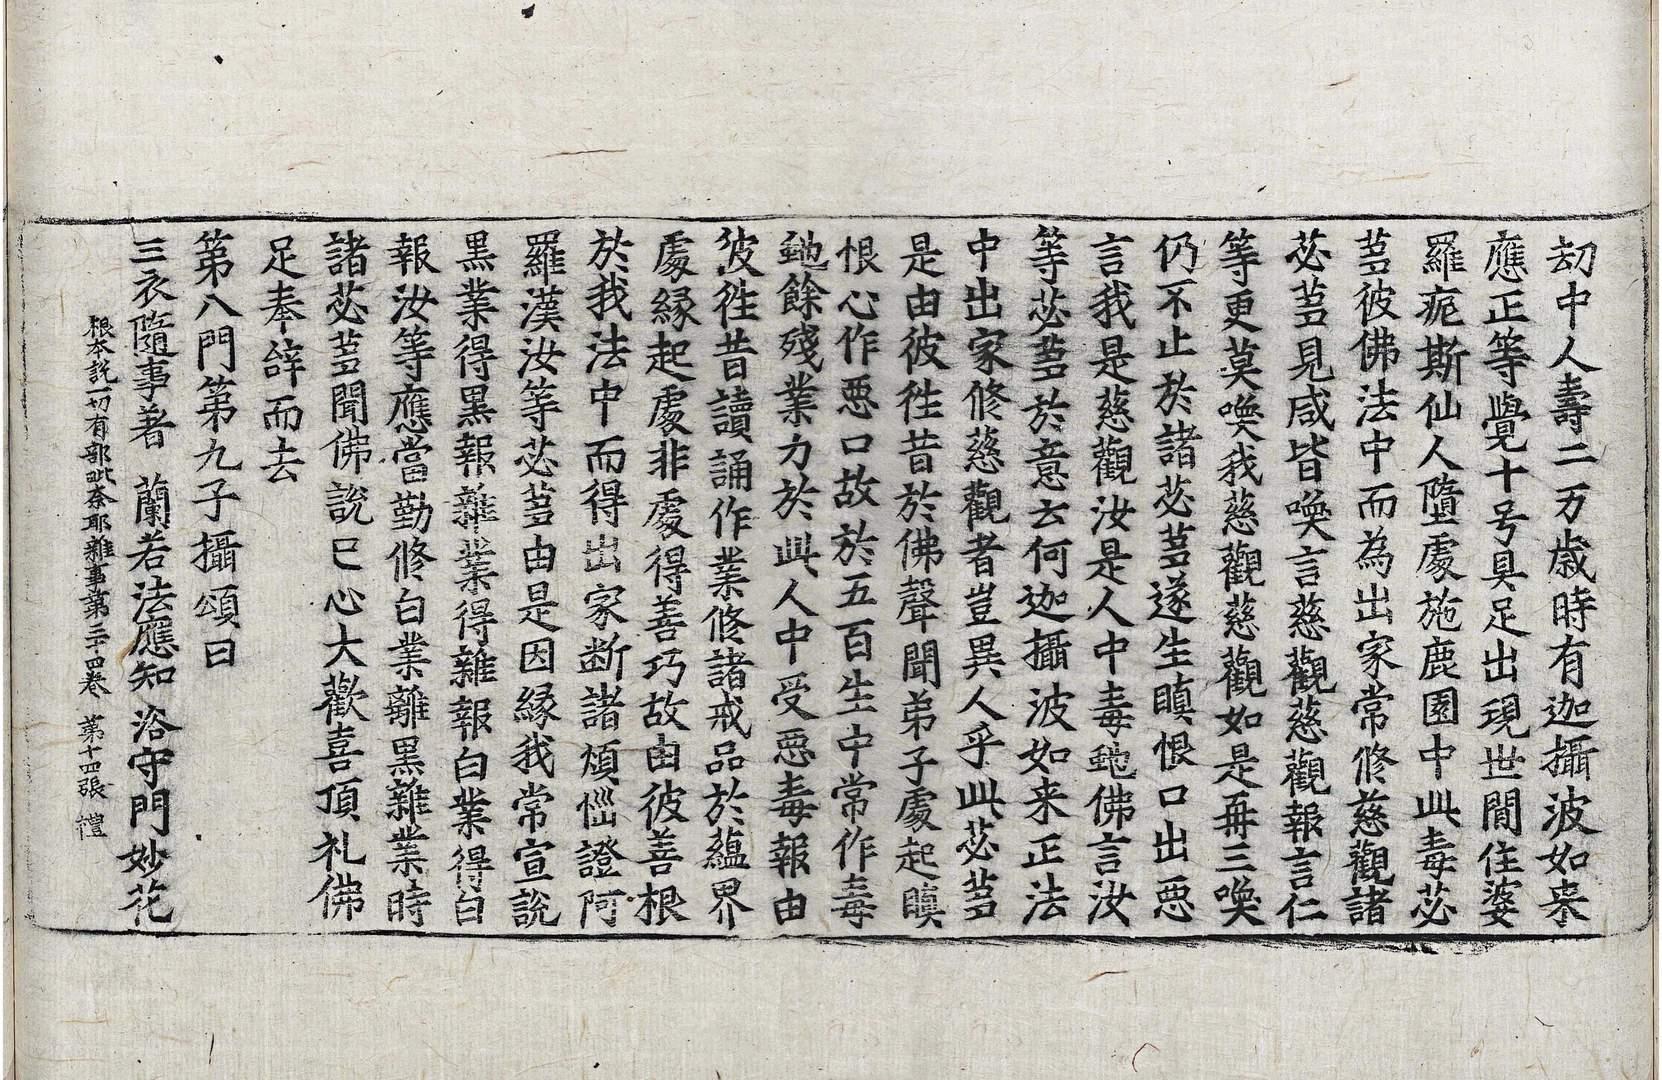 劫中人壽二万歲時有迦攝波如来
應正等覺十号具足出現世間住婆
羅痆斯仙人墮處施鹿園中此毒苾
蒭彼佛法中而為出家常修慈觀諸
苾蒭見咸皆喚言慈觀慈觀報言仁
等更莫喚我慈觀慈觀如是再三喚
仍不止於諸苾蒭遂生瞋恨口出惡
言我是慈觀汝是人中毒虵佛言汝
等苾蒭於意云何迦攝波如来正法
中出家修慈觀者豈異人乎此苾蒭
是由彼往昔於佛聲聞弟子處起瞋
恨心作惡口故於五百生中常作毒
虵餘殘業力於此人中受惡毒報由
彼徃昔讀誦作業修諸戒品於蘊界
處緣起處非處得善巧故由彼善根
於我法中而得出家断諸煩惱證阿
羅漢汝等苾蒭由是因緣我常宣說
黑業得黑報雜業得雜報白業得白
報汝等應當勤修白業離黑雜業時
諸苾蒭聞佛說已心大歡喜頂礼佛
足奉辞而去
第八門第九子攝頌曰
三衣隨事著　蘭若法應知　浴守門妙花
根本說一切有部毗奈耶雜事第三十四卷　第十四張　禮